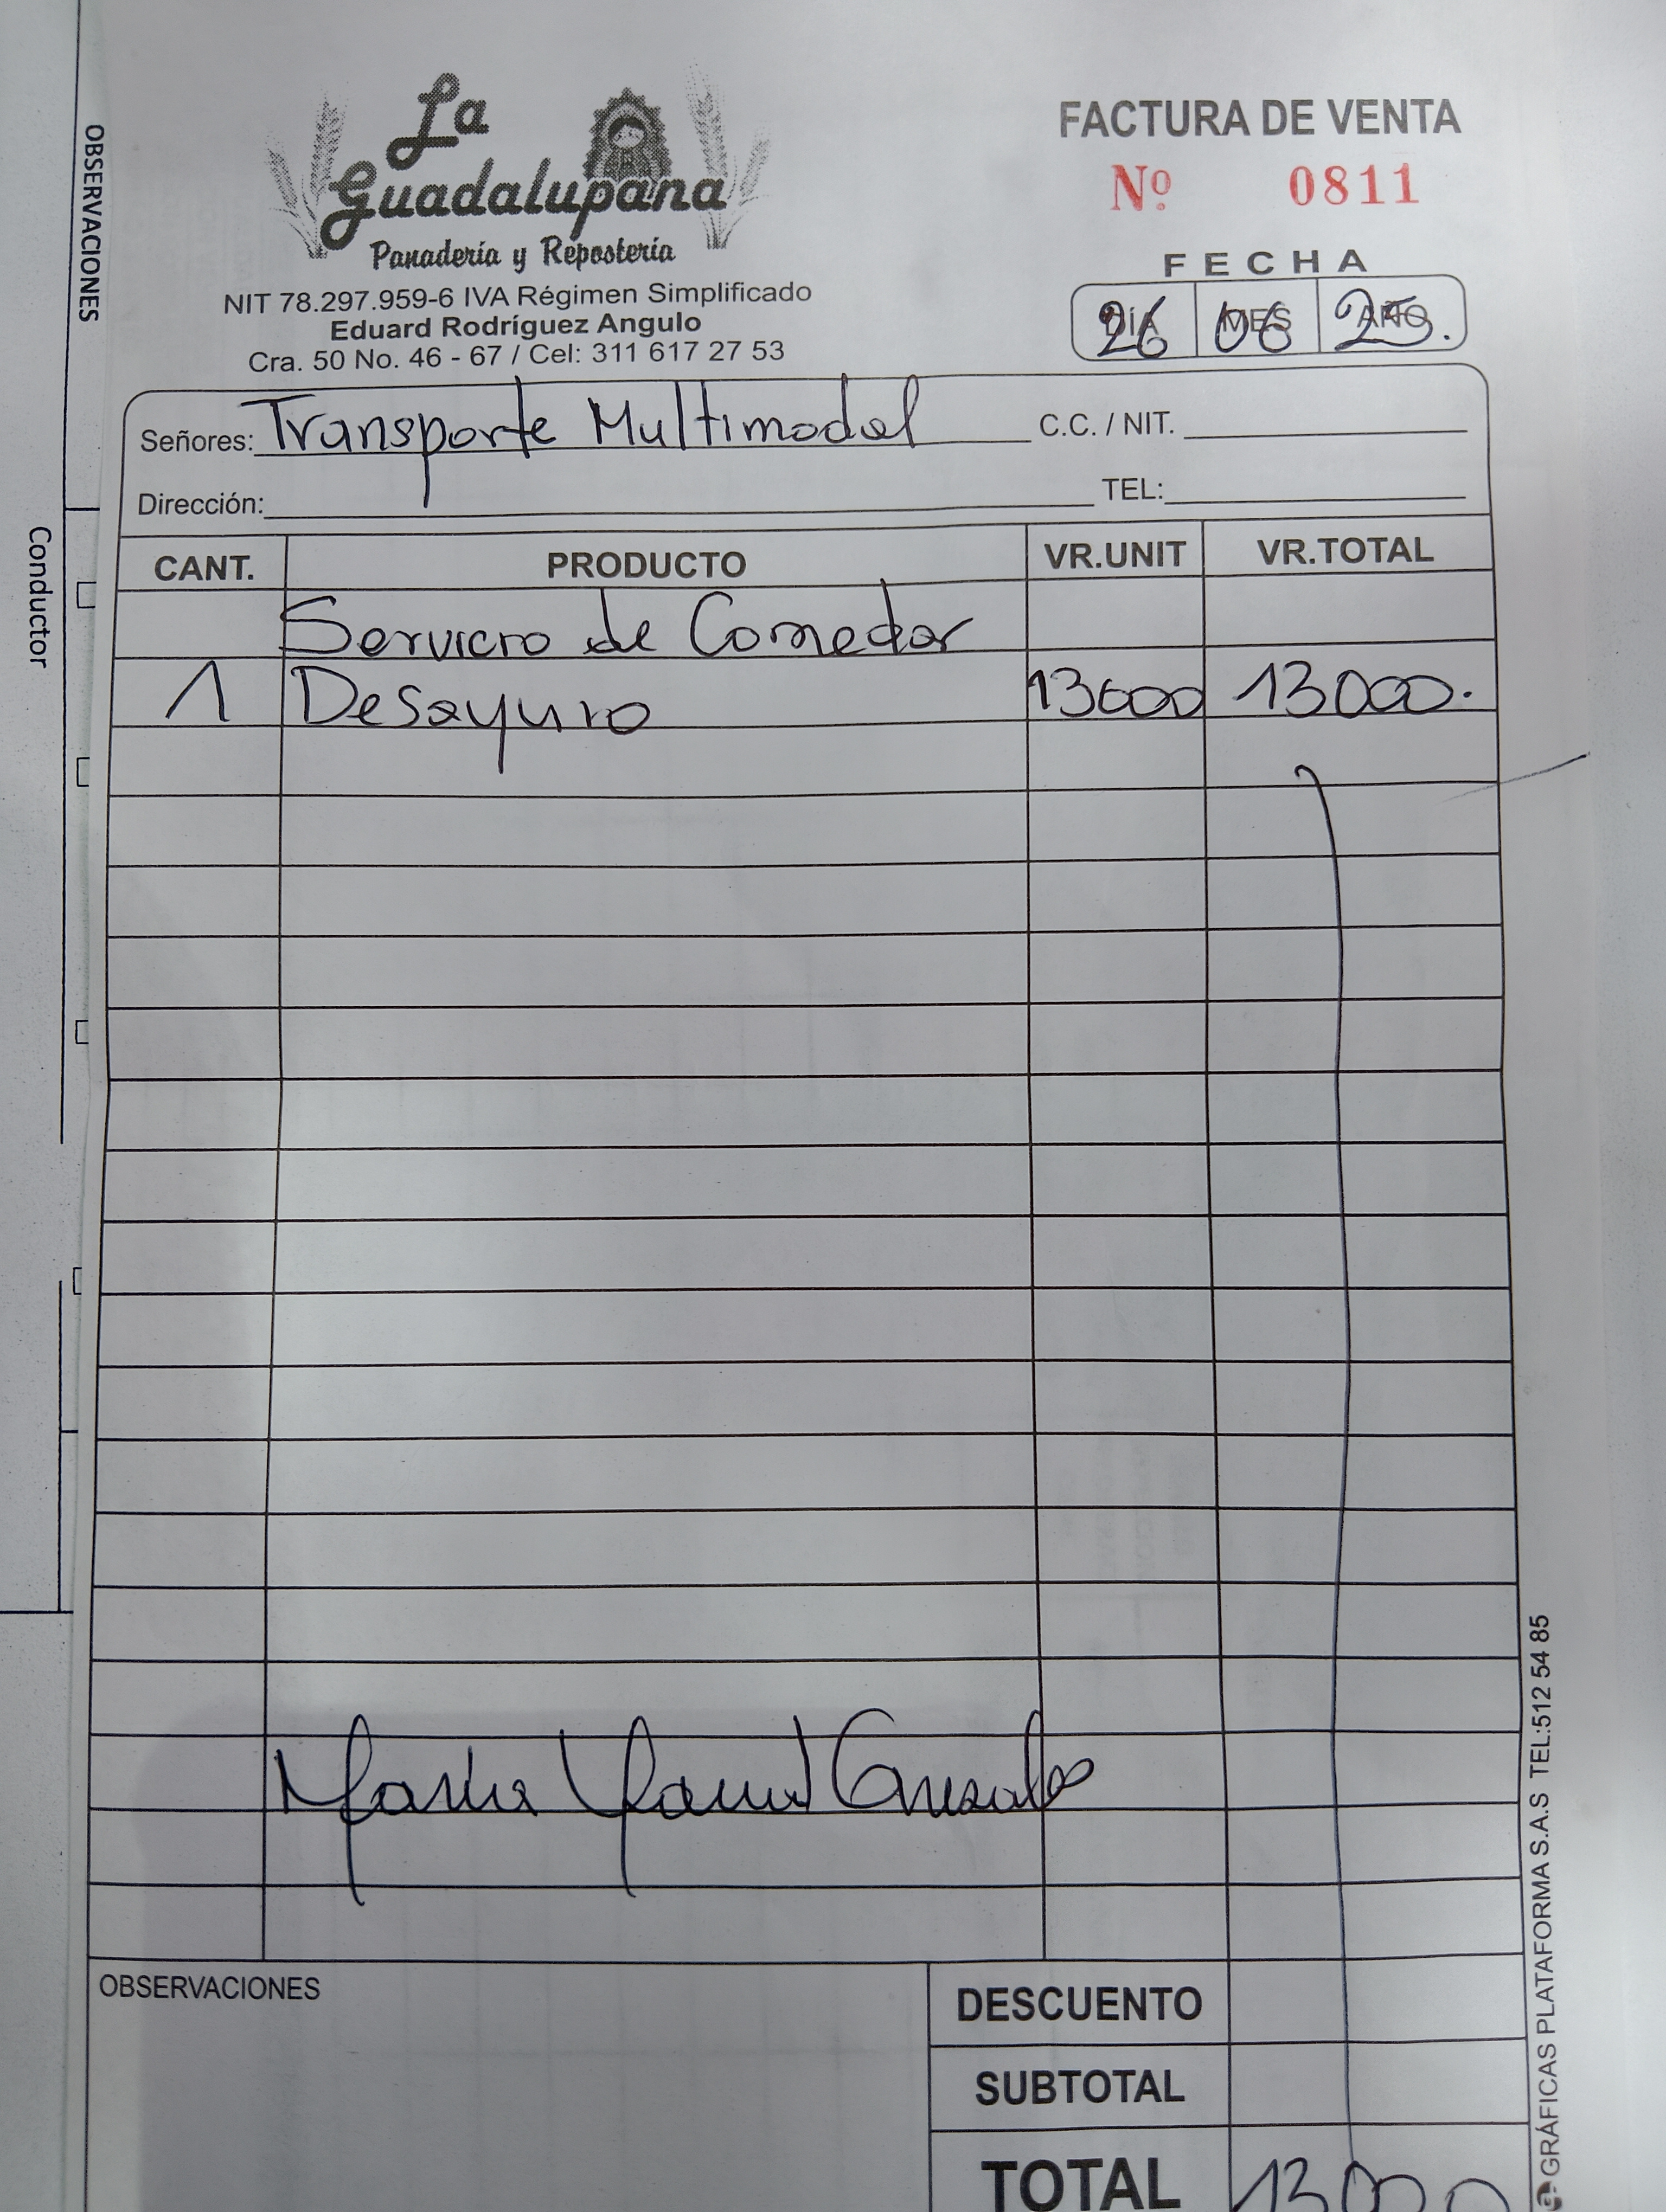 La
Guadalupana
Panadería y Repostería
NIT 78.297.959-6 IVA Régimen Simplificado
Eduard Rodríguez Angulo
Cra. 50 No. 46 - 67 / Cel: 311 617 27 53
FACTURA DE VENTA
Nº 0811
FECHA
DÍA MES AÑO
26 06 25.
Señores: Transporte Multimodal C.C. / NIT.
Dirección: TEL:
CANT. PRODUCTO VR.UNIT VR.TOTAL
Servicio de Comedor
1 Desayuno 13000 13000.
OBSERVACIONES
DESCUENTO
SUBTOTAL
TOTAL 13000
GRÁFICAS PLATAFORMA S.A.S TEL:512 54 85
OBSERVACIONES
Conductor